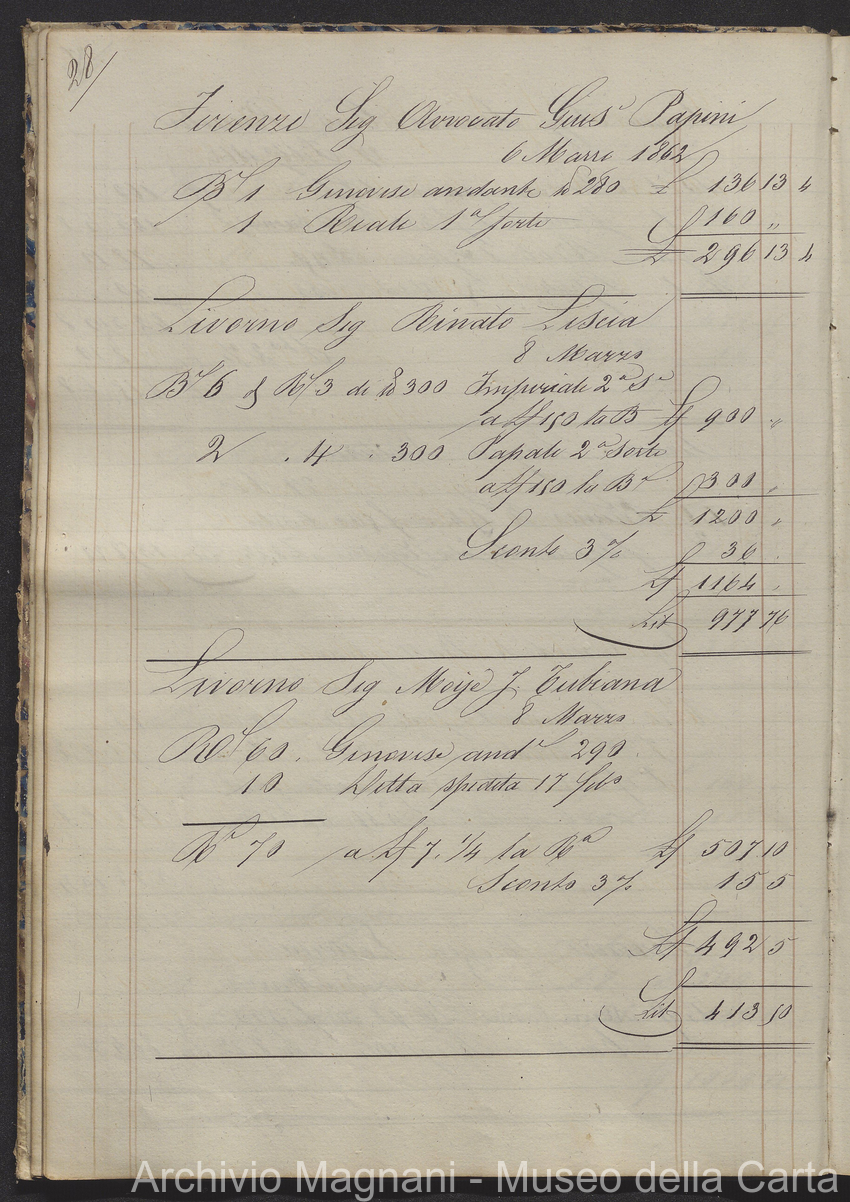 28/
Firenze Sig Avvocato Gius.e Papini
6 Marzo 1862
Bl 1 Genovese andante lb 280 £ 136 13 4
1 Reale 1a sorte £ 160 „
£ 296 13 4
Livorno Sig Rinato Liscia
8 Marzo
Bl 6 di Re 3 di lb 300 Imperiale 2a Se
a Lf 150 la B Lf 900 „
2 . 4 . 300 Papale 2a Sorte
a Lf 150 la Bl 300 „
£ 1200 „
Sconto 3% 36 .
Lf 1164 „
Lit 977 76
Livorno Sig Moise J. Tubiana
8 Marzo
Re 60 . Genovese ande 290
10 Detta spedita 17 Febo
Re 70 a Lf 7. 1/4 la Ra Lf 507 10
Sconto 3% 15 5
Lf 492 5
Lit 413 50
Archivio Magnani - Museo della Carta